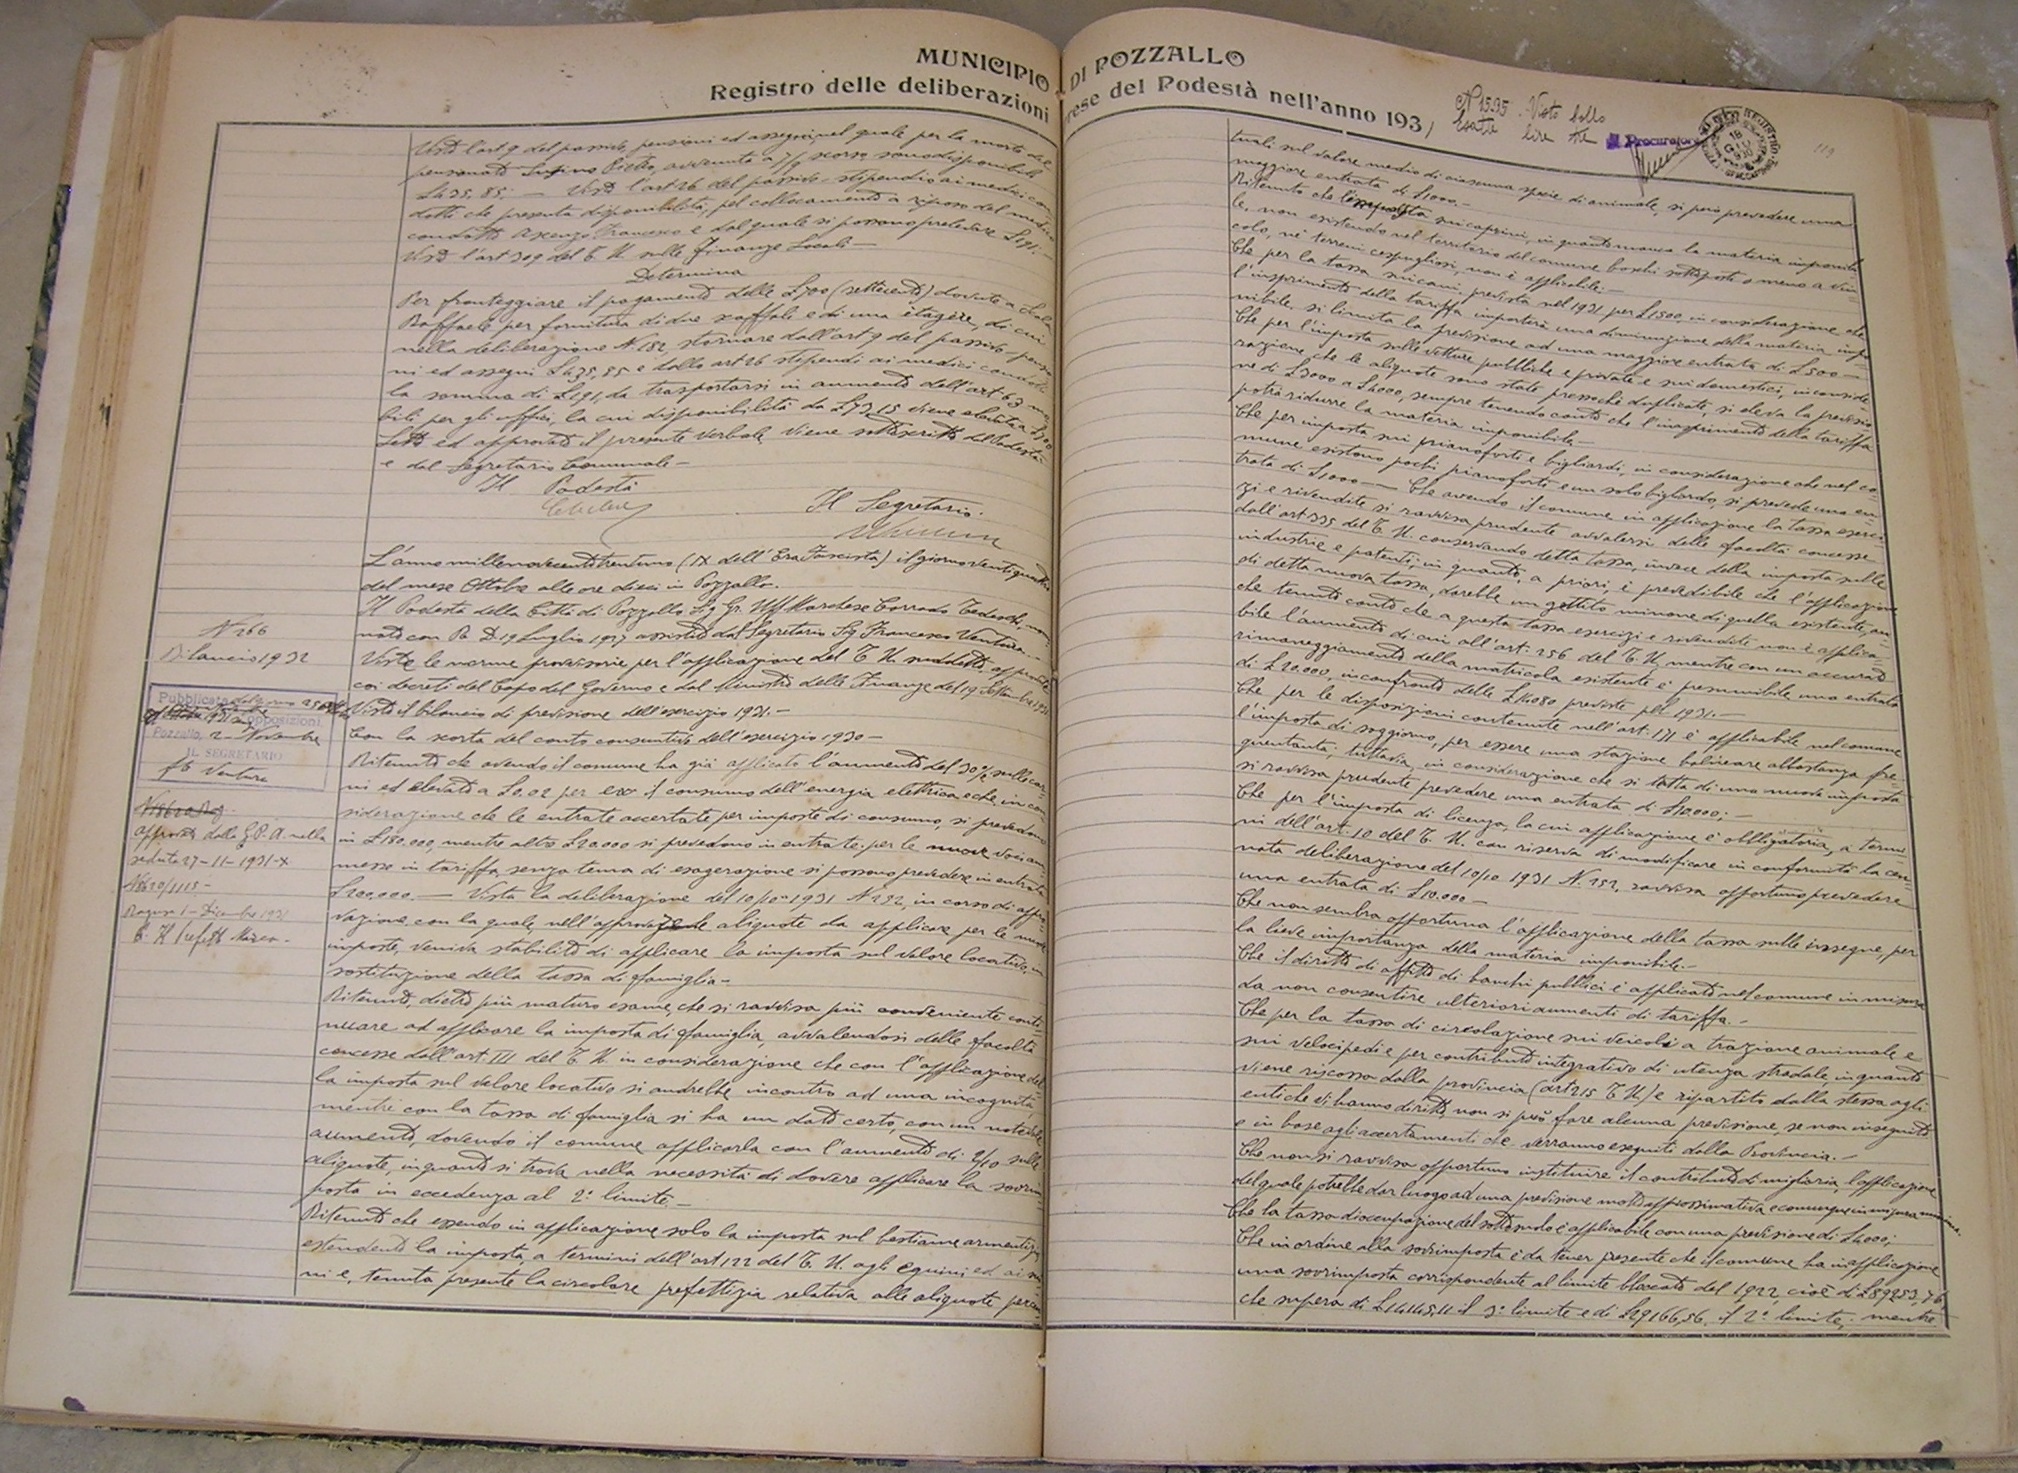 MUNICIPIO DI POZZALLO
Registro delle deliberazioni prese del Podestà nell'anno 1931
Visto l'art 9 del passivo, pensioni ed assegni, nel quale per la morte del
pensionato Pietro, avvenuta a scorso sono disponibili
L 435,85; — Visto l'art 26 del passivo - stipendio ai medici con
dotti che presenta disponibilità, pel collocamento a riposo del medico
condotto Ascenzo Francesco e dal quale si possono prelevare L 191; —
Visto l'art 309 del T. U. sulle Finanze Locali —
Determina
Per fronteggiare il pagamento delle L 700 (settecento) dovute a
Raffaele per fornitura di due scaffali e di una étagère, di cui
nella deliberazione N. 182, stornare dall'art 9 del passivo - pensio
ni ed assegni L 435,85 e dallo art 26 stipendi ai medici condotti
la somma di L 191, da trasportarsi in aumento dell'art 63 mo
bili per gli uffici, la cui disponibilità da L 73,15 viene elevata a L 700
Letto ed approvato il presente verbale viene sottoscritto dal Podestà
e dal Segretario Comunale —
Il Podestà
Il Segretario.
L'anno millenovecentotrentuno (IX dell'Era Fascista) il giorno ventiquattro
del mese Ottobre alle ore dieci in Pozzallo.
Il Podestà della Città di Pozzallo Sig Gr. Uff Marchese Corrado Tedeschi, nomi
nato con R. D. 19 Luglio 1927 assistito dal Segretario Sig Francesco Ventura. —
N 266
Bilancio 1932
Viste le norme provvisorie per l'applicazione del T. U. suddetto, approvate
coi decreti del Capo del Governo e dal Ministro delle Finanze del 19 Settembre 1931
Pubblicata dal giorno 25
opposizioni
Pozzallo, 2 - Novembre
IL SEGRETARIO
fto Ventura
Visto il bilancio di previsione dell'esercizio 1931. —
Con la scorta del conto consuntivo dell'esercizio 1930 —
Ritenuto che avendo il comune ha già applicato l'aumento del 30 % sulle car
ni ed elevato a L 0,02 per ew il consumo dell'energia elettrica e che, in con
siderazione che le entrate accertate per imposte di consumo, si prevedono
in L 180,000, mentre altre L 20.000 si prevedono in entrata per le nuove voci am
messe in tariffa, senza tema di esagerazione si possono prevedere in entrata
L 200,000. — Vista la deliberazione del 10/10 1931 N 222, in corso di appro
vazione, con la quale, nell'approvare le aliquote da applicare per le nuove
imposte, veniva stabilito di applicare la imposta sul valore locativo, in
sostituzione della tassa di famiglia —
approvata dalla G. P. A. nella
seduta 27-11-1931-X
Ragusa 1 - Dicembre 1931
Ritenuto, dietro più maturo esame, che si ravvisa più conveniente conti
nuare ad applicare la imposta di famiglia, avvalendosi delle facoltà
concesse dall'art. 111 del T. U. in considerazione che con l'applicazione del
la imposta sul valore locativo si andrebbe incontro ad una incognita
mentre con la tassa di famiglia si ha un dato certo, con un notevole
aumento, dovendo il comune applicarla con l'aumento di 2/10 sulle
aliquote, in quanto si trova nella necessità di dovere applicare la sovrim
posta in eccedenza al 2° limite. —
Ritenuto che essendo in applicazione solo la imposta sul bestiame armentizio,
estendendo la imposta, a termini dell'art 122 del T. U. agli equini ed ai sui
ni e, tenuta presente la circolare prefettizia relativa alle aliquote percen
N 1535 Visto bollo
Esatte lire
Il Procuratore
119
tuali sul valore medio di ciascuna specie di animale, si può prevedere una
maggiore entrata di L 1000. —
Ritenuto che l'imposta sui caprini, in quanto manca la materia imponibi
le, non esistendo nel territorio del comune boschi sottoposti o meno a vin
colo, nè terreni cespugliosi, non è applicabile. —
Che per la tassa sui cani, prevista nel 1931 per L 1500, in considerazione che
l'insprimento della tariffa importerà una diminuzione della materia impo
nibile, si limita la previsione ad una maggiore entrata di L 500 —
Che per l'imposta sulle vetture pubbliche e private e sui domestici, in conside
razione che le aliquote sono state pressochè duplicate, si eleva la previsio
ne di L 3000 a L 4000, sempre tenendo conto che l'inasprimento della tariffa
potrà ridurre la materia imponibile —
Che per imposta sui pianoforti e bigliardi, in considerazione che nel co
mune esistono pochi pianoforti e un solo bigliardo, si prevede una en
trata di L 1000 — Che avendo il comune in applicazione la tassa eserci
zi e rivendite si ravvisa prudente avvalersi delle facoltà concesse
dall'art 335 del T. U. conservando detta tassa, invece della imposta sulle
industrie e patenti; in quanto, a priori, è prevedibile che l'applicazione
di detta nuova tassa, darebbe un gettito minore di quella esistente, an
che tenuto conto che a questa tassa esercizi e rivendite non è applica
bile l'aumento di cui all'art. 256 del T. U, mentre con un accurato
rimaneggiamento della matricola esistente è presumibile una entrata
di L 20.000, in confronto delle L 14080 previste pel 1931. —
Che per le disposizioni contenute nell'art. 171 è applicabile nel comune
l'imposta di soggiorno, per essere una stazione balneare abbastanza fre
quentata; tuttavia, in considerazione che si tratta di una nuova imposta
si ravvisa prudente prevedere una entrata di L 10.000; —
Che per l'imposta di licenza, la cui applicazione è obbligatoria, a termi
ni dell'art. 10 del T. U. con riserva di modificare in conformità la cen
nata deliberazione del 10/10 1931 N. 252, ravvisa opportuno prevedere
una entrata di L 10.000 —
Che non sembra opportuna l'applicazione della tassa sulle insegne, per
la lieve importanza della materia imponibile. —
Che il diritto di affitto di banchi pubblici è applicato nel comune in misura
da non consentire ulteriori aumenti di tariffa. —
Che per la tassa di circolazione sui veicoli a trazione animale e
sui velocipedi e per contributo integrativo di utenza stradale, in quanto
viene riscossa dalla provincia (art 215 T. U.) e ripartito dalla stessa agli
enti che vi hanno diritto, non si può fare alcuna previsione, se non in seguito
e in base agli accertamenti che verranno eseguiti dalla Provincia. —
Che non si ravvisa opportuno instituire il contributo di miglioria, l'applicazione
del quale potrebbe dar luogo ad una previsione molto approssimativa e comunque in misura minima.
Che la tassa di occupazione del sottosuolo è applicabile con una previsione di L 4000;
Che in ordine alla sovrimposta è da tener presente che il comune ha in applicazione
una sovrimposta corrispondente al limite bloccato del 1922 cioè di L 89253,76,
che supera di L 14145,11 il 3° limite e di L 29166,56 il 2° limite; mentre